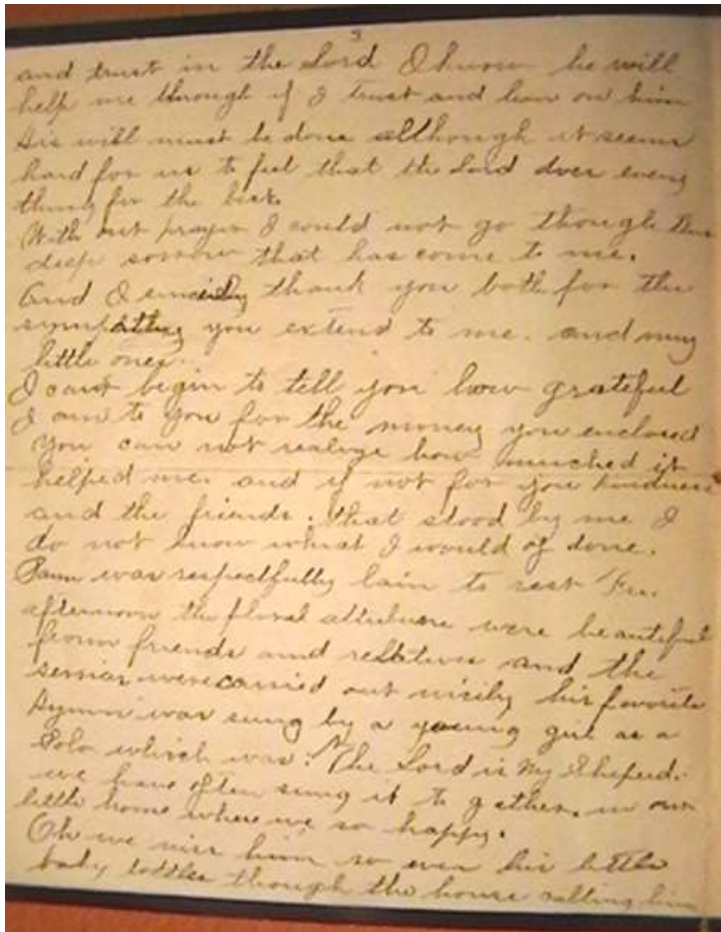 3
and trust in the Lord I know he will
help me through if I trust and lean on him
His will must be done although it seems
hard for us to feel that the Lord does every
thing for the best.
With out prayer I could not go though this
deep sorrow that has come to me.
And I sincerely thank you both for the
sympathy you extend to me. and my
little ones.
I cant begin to tell you how grateful
I am to you for the money you enclosed
you can not realize how muched it
helped me. and if not for you kindness
and the friends. that stood by me I
do not know what I would of done.
was respectfully lain to rest Fri.
afternoon the floral were beautiful
from friends and relatives and the
were carried out nicily his favorite
Hymn was sung by a young girl as a
Solo which was: "The Lord is My Sheperd.
we have often sung it to gether. in our
little home where we so happy.
Oh we miss him so even his little
baby toddles through the house calling him